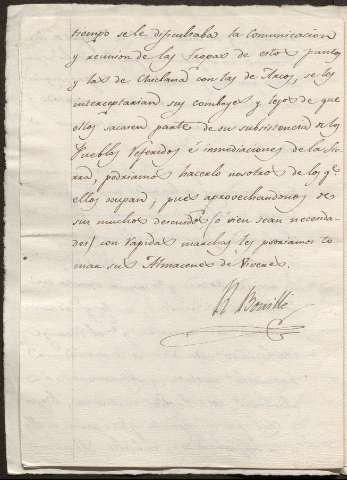 tiempo se le dificultaba la comunicacion
y reunion de las Tropas de estos puntos
y las de Chiclana con las de Arcos, se les
interceptarian sus comboyes y lejos de que
ellos sacasen parte de su subsistencia de los
Pueblos referidos é inmediaciones de la Sier-
ra, podriamos hacerlo nosotros de los q.e
ellos ocupan; pues aprovechandonos de
sus muchos descuidos (o bien sean necesida-
des) con rapidas marchas les podriamos to-
mar sus Almacenes de Viveres.
R Bouille